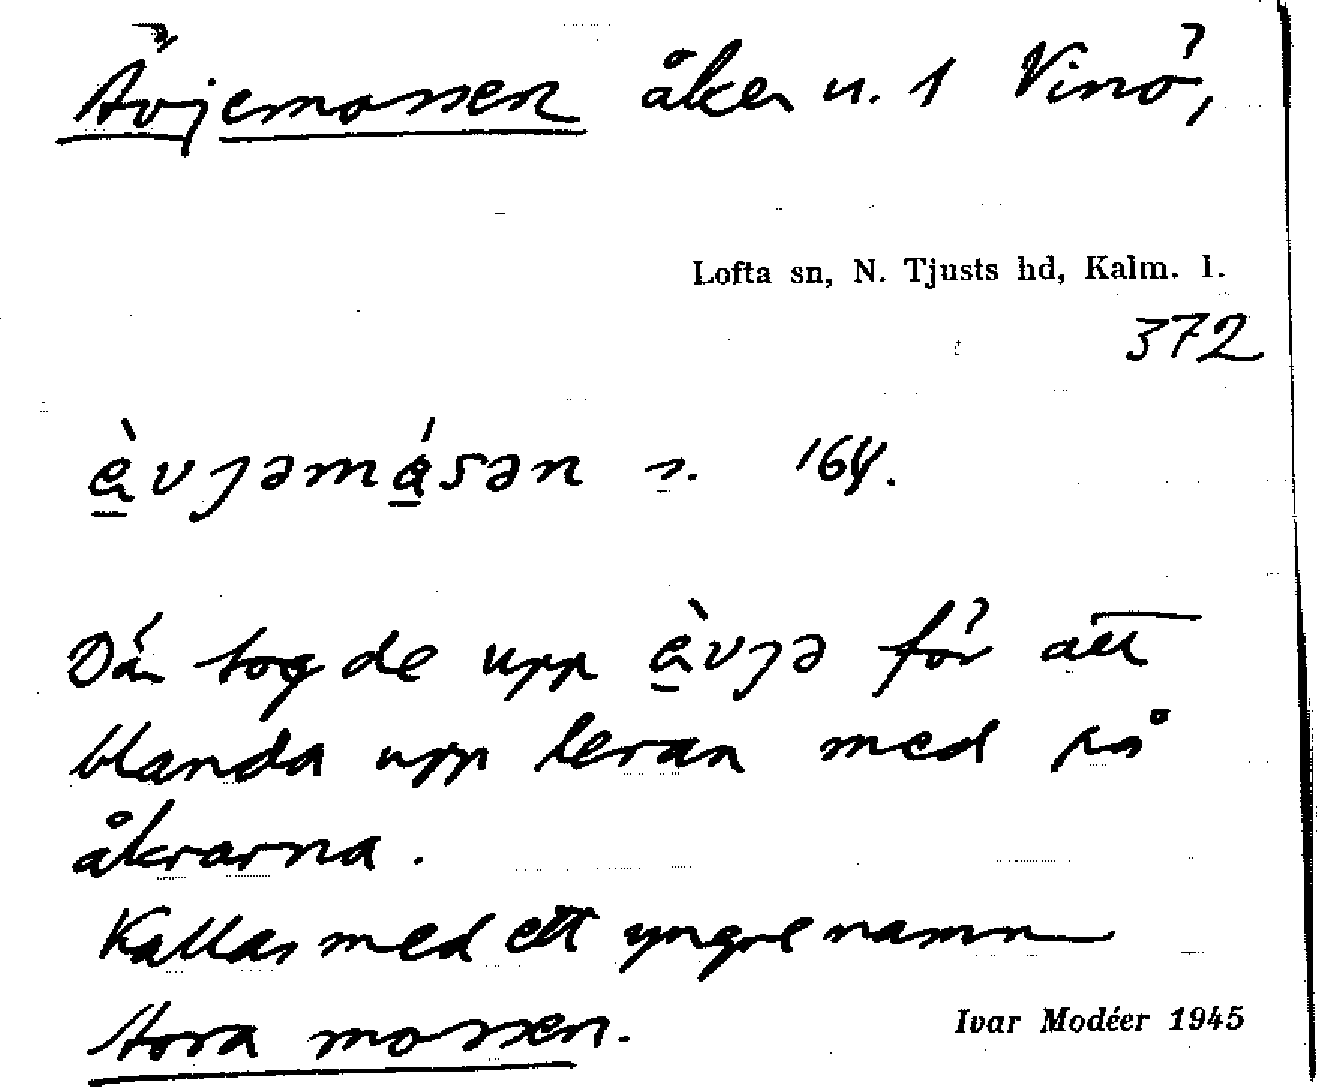 Ävjemossen åker u. 1 Vinö,
Lofta sn, N. Tjusts hd, Kalm. l.
372
ὰvȷəmásən s. 164.
Där tog de upp ὰvȷə för att
blanda upp leran med på
åkrarna.
Kallas med ett yngre namn
Stora mossen.
Ivar Modéer 1945